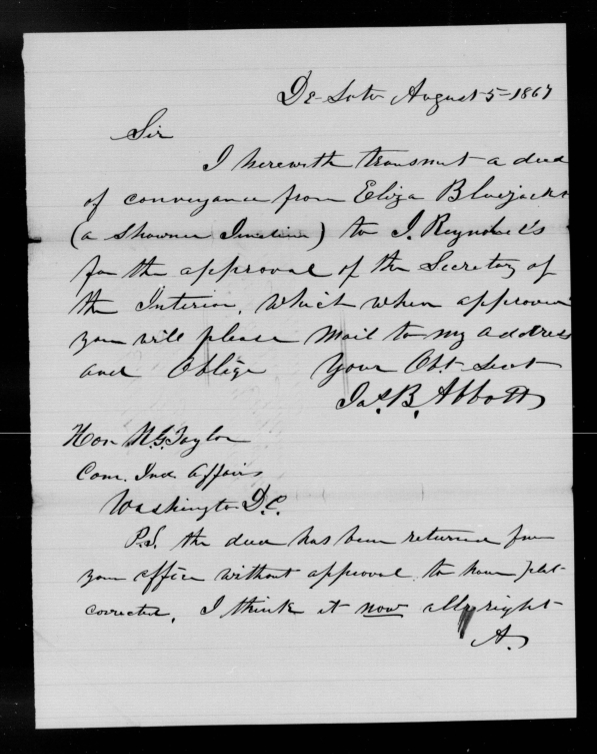 De Soto August 5=1867
Sir
I herewith transmit a deed
of conveyance from Eliza Bluejacket
(a Shawnee Indian) to J. Reynolds
for the approval of the Secretary of
the Interior, which when approved
you will please mail to my address
and Oblige Your Obt Servt
Jas. B. Abbott
Hon N.G. Taylor
Com. Ind Affairs
Washington D.C.
P.S. the deed has been returned from
your office without approval to have plat
corrected, I think it now all right
A.